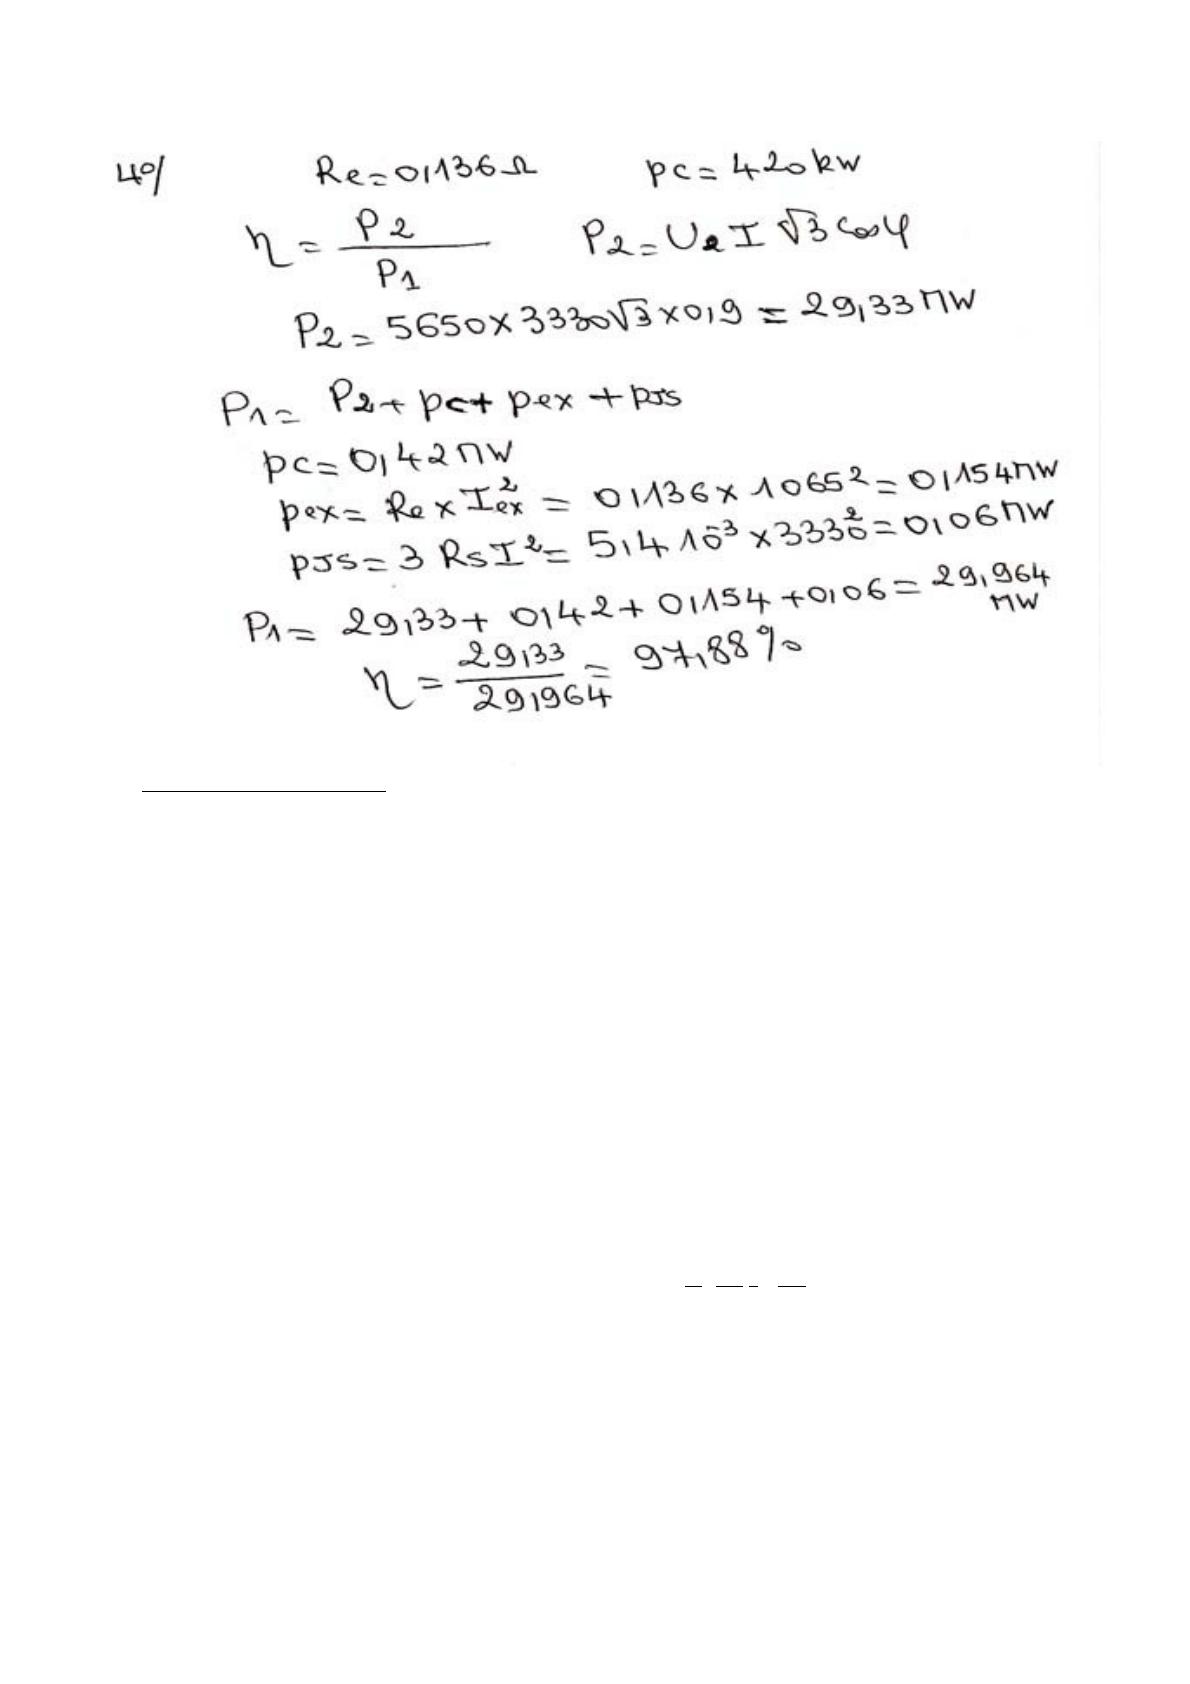 4°/ Re=0,136Ω pc=420kw
η = P2/P1 P2=U2 I √3 cosφ
P2=5650×3330√3×0,9=29,33MW
P1= P2+pc+pex+pJS
pc=0,42MW
pex=Re×Iex²=0,136×1065²=0,154MW
pJS=3RsI²=5,4 10⁻³×3330²=0,06MW
P1=29,33+0,42+0,154+0,06=29,964 MW
η=29,33/29,964=97,88%